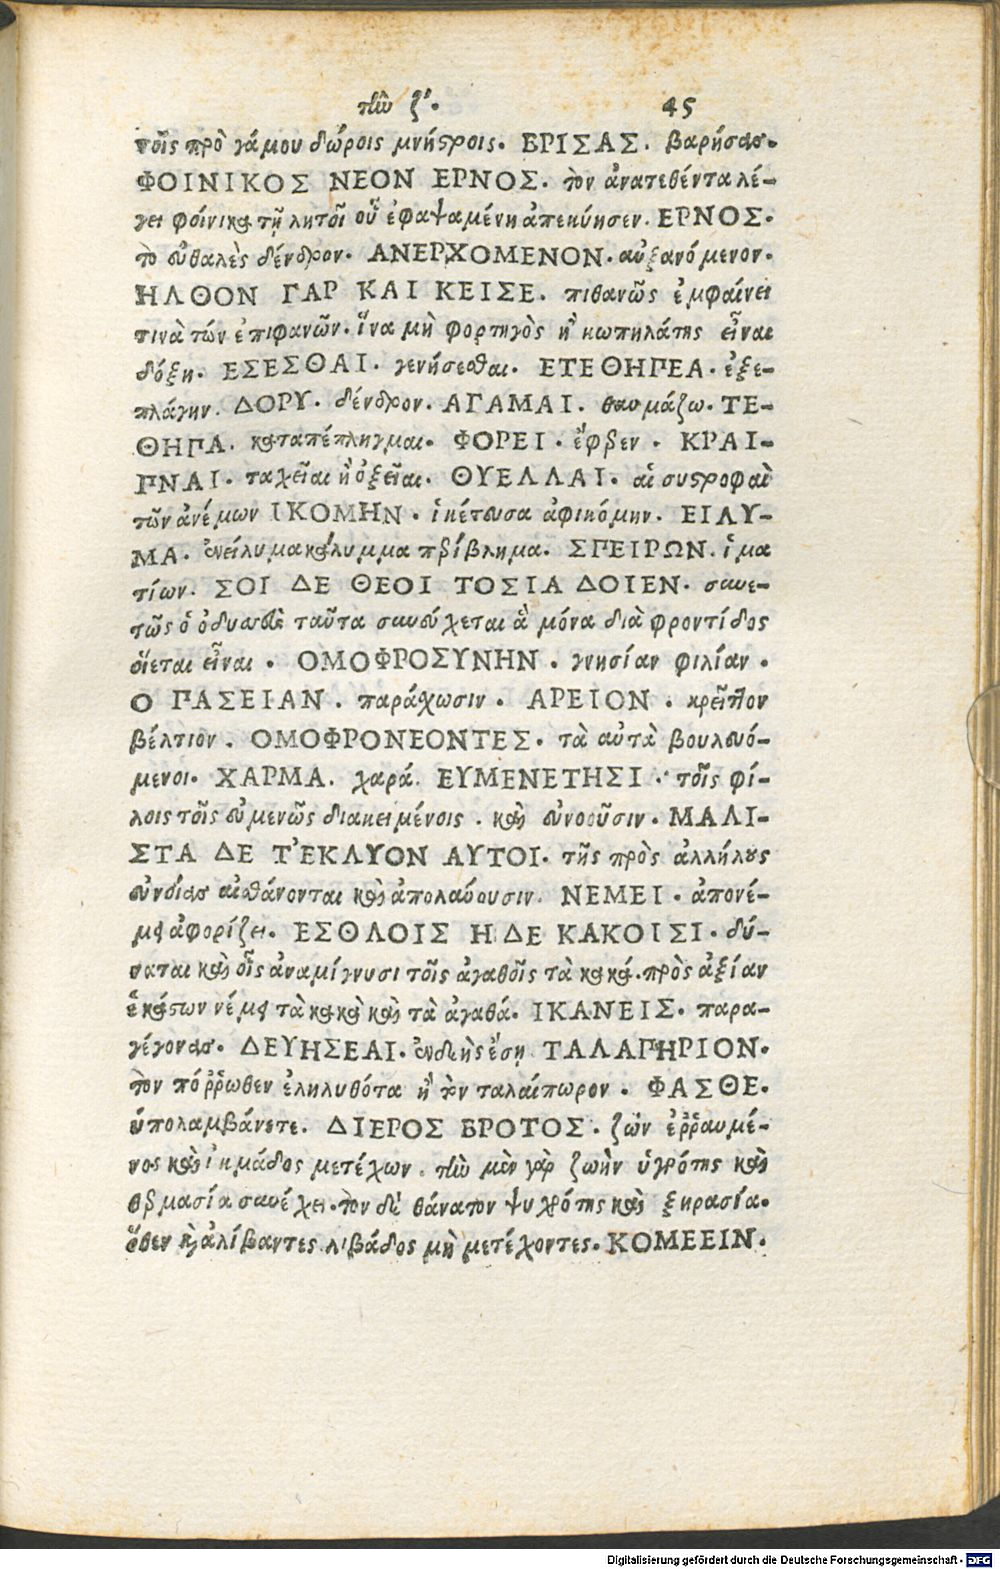 τῶν ζ´. 45
τοῖς πρὸ γάμου δώροις μνήστροις. ΒΡΙΣΑΣ. βαρήσας.
ΦΟΙΝΙΚΟΣ ΝΕΟΝ ΕΡΝΟΣ. τὸν ἀνατεθέντα λέ-
γει φοίνικα τῇ λητοῖ οὗ ἐφαψαμένη ἀπεκύησεν. ΕΡΝΟΣ.
τὸ εὐθαλὲς δένδρον. ΑΝΕΡΧΟΜΕΝΟΝ. αὐξανόμενον.
ΗΛΘΟΝ ΓΑΡ ΚΑΙ ΚΕΙΣΕ. πιθανῶς ἐμφαίνει
τινὰ τῶν ἐπιφανῶν. ἵνα μὴ φορτηγὸς ἢ κωπηλάτης εἶναι
δόξη. ΕΣΕΣΘΑΙ. γενήσεσθαι. ΕΤΕΘΗΠΕΑ. ἐξε-
πλάγην. ΔΟΡΥ. δένδρον. ΑΓΑΜΑΙ. θαυμάζω. ΤΕ-
ΘΗΠΑ. καταπέπληγμαι. ΦΟΡΕΙ. ἔφερεν. ΚΡΑΙ-
ΠΝΑΙ. ταχεῖαι ἢ ὀξεῖαι. ΘΥΕΛΛΑΙ. αἱ συστροφαὶ
τῶν ἀνέμων ΙΚΟΜΗΝ. ἱκέτευσα ἀφικόμην. ΕΙΛΥ-
ΜΑ. ἐνείλυμα κάλυμμα περίβλημα. ΣΠΕΙΡΩΝ. ἱμα
τίων. ΣΟΙ ΔΕ ΘΕΟΙ ΤΟΣΙΑ ΔΟΙΕΝ. συνε-
τῶς ὁ ὀδυσσεὺς ταῦτα συνεύχεται ἃ μόνα διὰ φροντίδος
οἴεται εἶναι. ΟΜΟΦΡΟΣΥΝΗΝ. γνησίαν φιλίαν.
Ο ΠΑΣΕΙΑΝ. παράχωσιν. ΑΡΕΙΟΝ. κρεῖττον
βέλτιον. ΟΜΟΦΡΟΝΕΟΝΤΕΣ. τὰ αὐτὰ βουλευό-
μενοι. ΧΑΡΜΑ. χαρά. ΕΥΜΕΝΕΤΗΣΙ. τοῖς φί-
λοις τοῖς εὐμενῶς διακειμένοις. καὶ εὐνοοῦσιν. ΜΑΛΙ-
ΣΤΑ ΔΕ Τ'ΕΚΛΥΟΝ ΑΥΤΟΙ. τῆς πρὸς ἀλλήλους
εὐνοίας αἰσθάνονται καὶ ἀπολαύουσιν. ΝΕΜΕΙ. ἀπονέ-
μει ἀφορίζει. ΕΣΘΛΟΙΣ Η ΔΕ ΚΑΚΟΙΣΙ. δύ-
ναται καὶ οἷς ἀναμίγνυσι τοῖς ἀγαθοῖς τὰ κακά. πρὸς ἀξίαν
ἑκάστων νέμει τὰ κακὰ καὶ τὰ ἀγαθά. ΙΚΑΝΕΙΣ. παρα-
γέγονας. ΔΕΥΗΣΕΑΙ. ἐνδεὴς ἔση. ΤΑΛΑΠΗΡΙΟΝ.
τὸν πόῤῥωθεν ἐληλυθότα ἢ τὸν ταλαίπωρον. ΦΑΣΘΕ.
ὑπολαμβάνετε. ΔΙΕΡΟΣ ΒΡΟΤΟΣ. ζῶν ἐῤῥωμέ-
νος καὶ ἰκμάδος μετέχων. τὴν μὲν γὰρ ζωὴν ὑγρότης καὶ
θερμασία συνέχει. τὸν δὲ θάνατον ψυχρότης καὶ ξηρασία.
ὅθεν καὶ ἀλίβαντες λιβάδος μὴ μετέχοντες. ΚΟΜΕΕΙΝ.
Digitalisierung gefördert durch die Deutsche Forschungsgemeinschaft - DFG